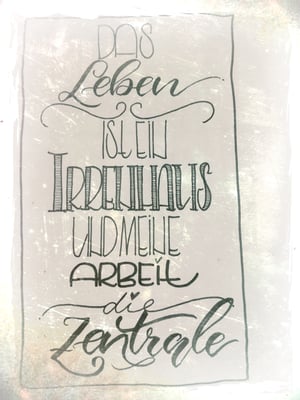 DAS
Leben
IST EIN
IRRENHAUS
UND MEINE
ARBEIT
die
Zentrale